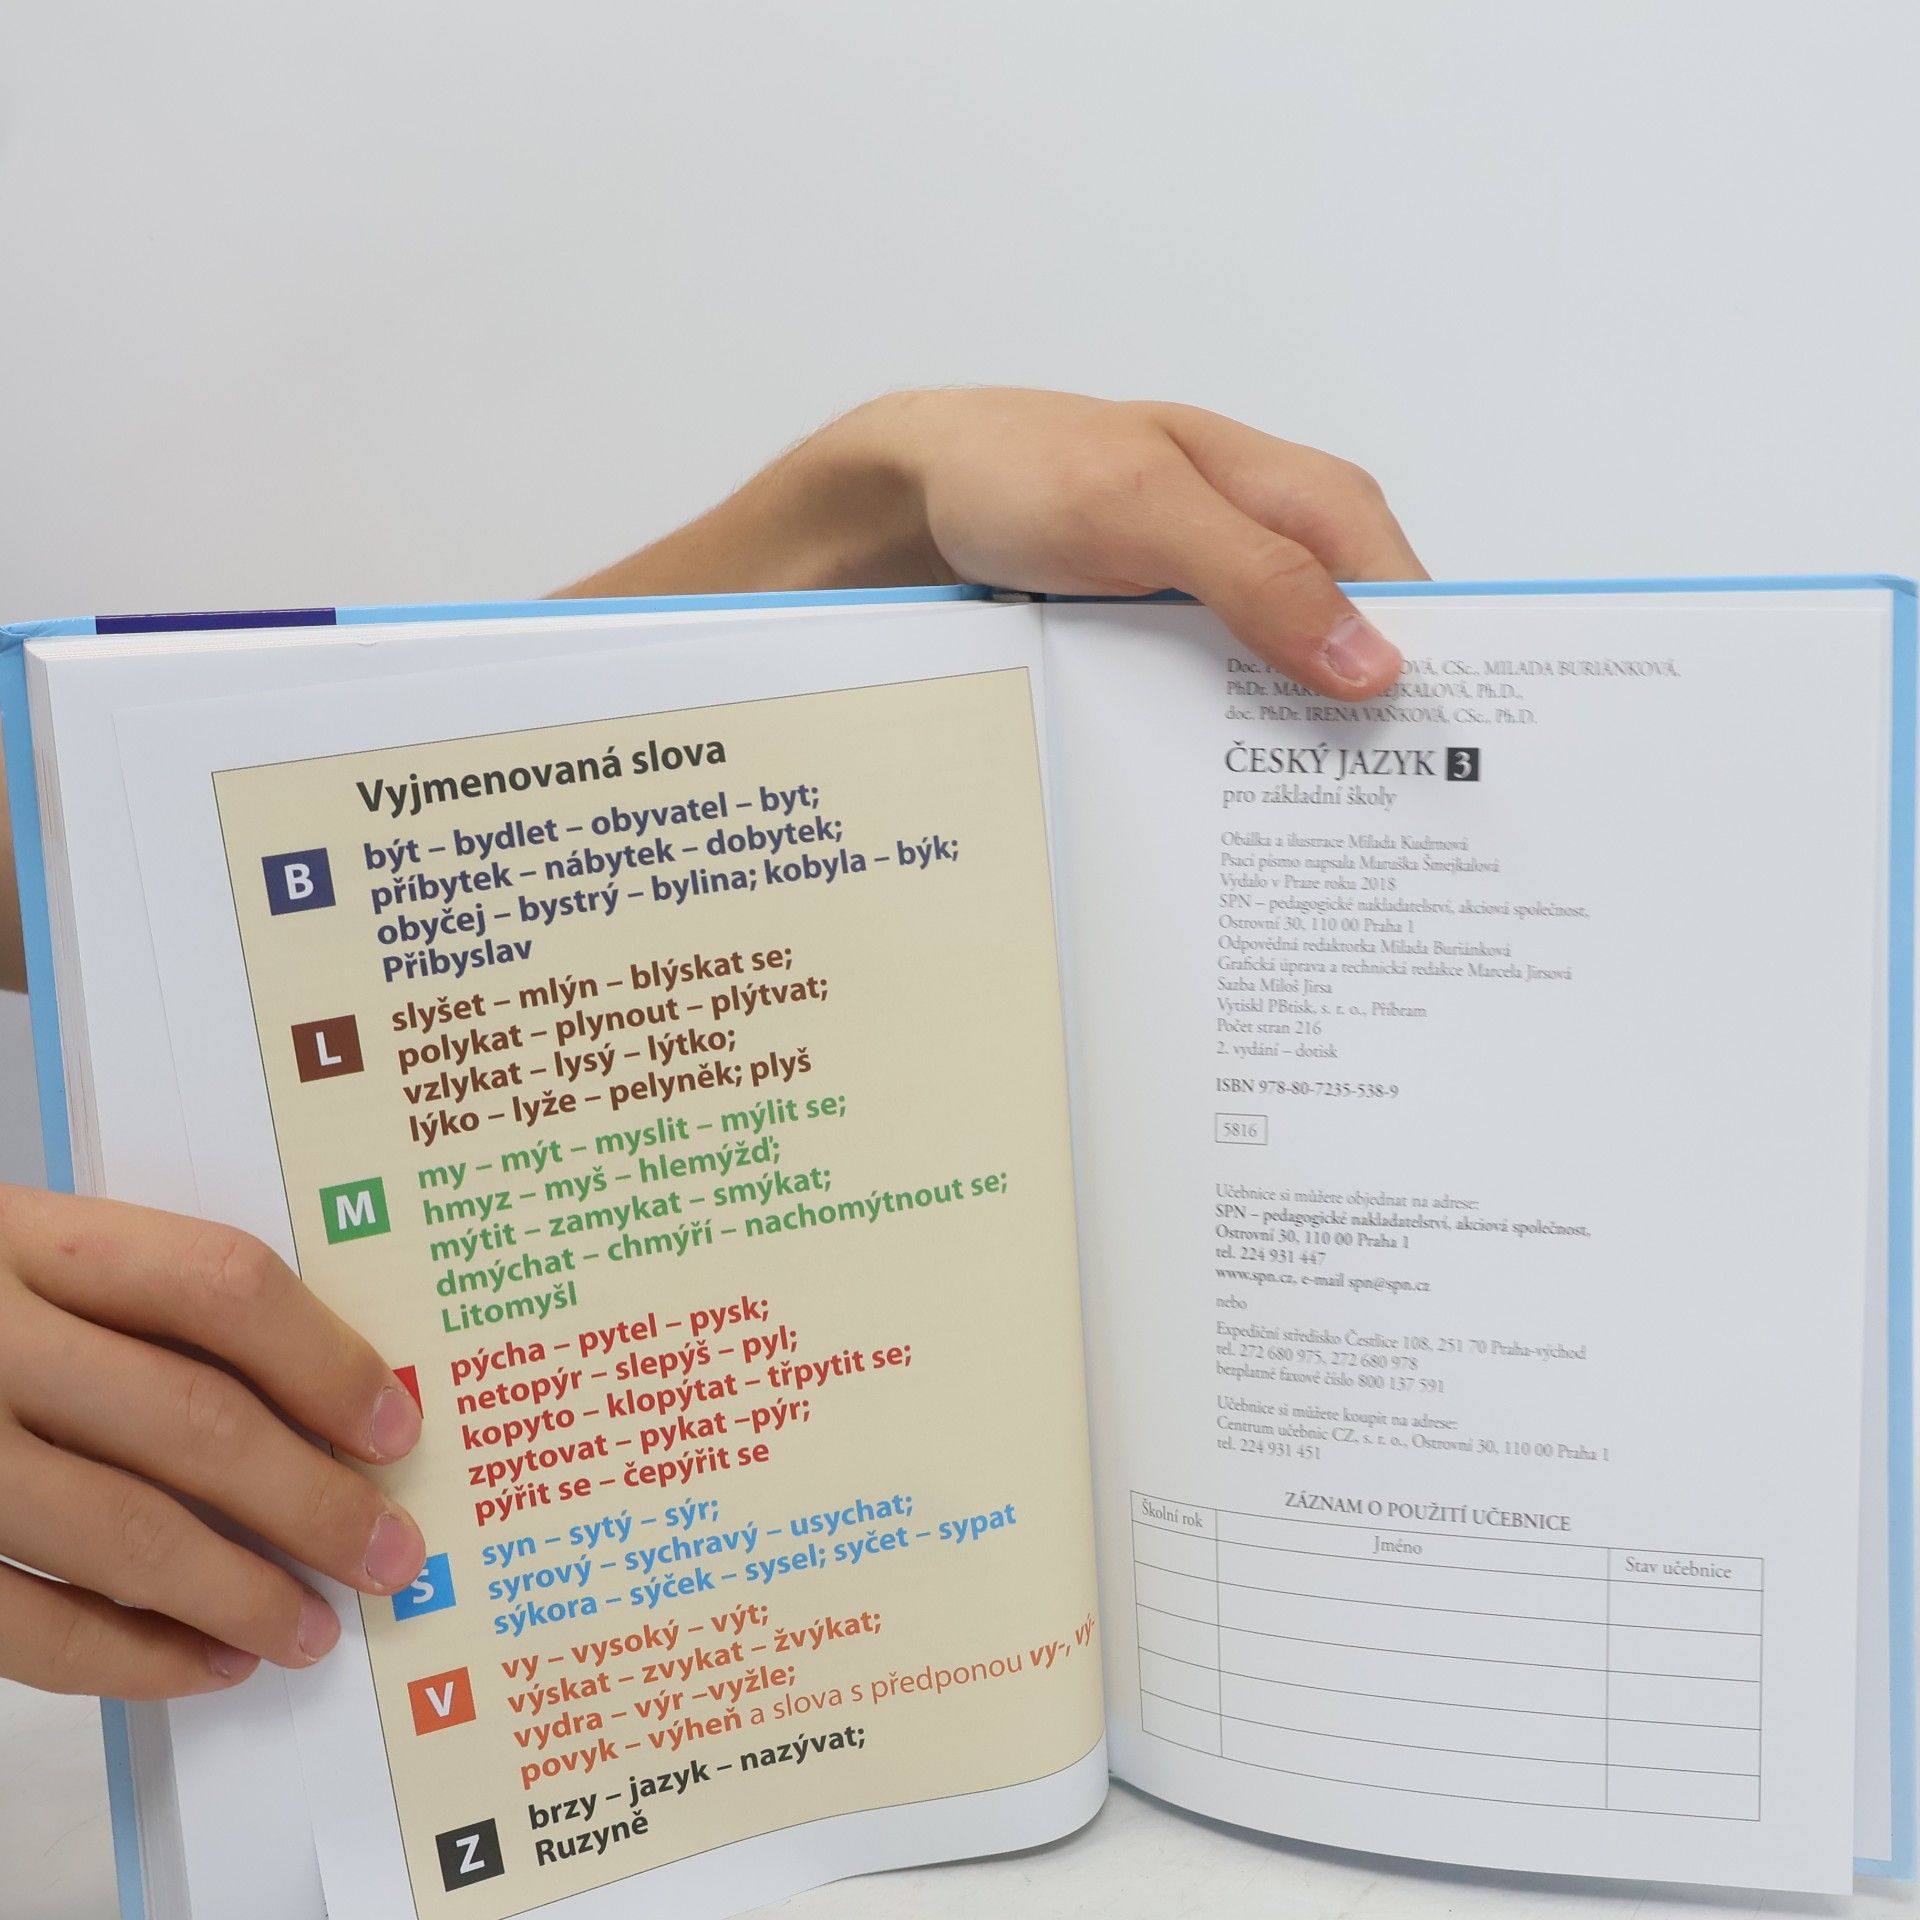 Vyjmenovaná slova
B
být – bydlet – obyvatel – byt;
příbytek – nábytek – dobytek;
obyčej – bystrý – bylina; kobyla – býk;
Přibyslav
L
slyšet – mlýn – blýskat se;
polykat – plynout – plýtvat;
vzlykat – lysý – lýtko;
lýko – lyže – pelyněk; plyš
M
my – mýt – myslit – mýlit se;
hmyz – myš – hlemýžď;
mýtit – zamykat – smýkat;
dmýchat – chmýří – nachomýtnout se;
Litomyšl
pýcha – pytel – pysk;
netopýr – slepýš – pyl;
kopyto – klopýtat – třpytit se;
zpytovat – pykat –pýr;
pýřit se – čepýřit se
S
syn – sytý – sýr;
syrový – sychravý – usychat;
sýkora – sýček – sysel; syčet – sypat
V
vy – vysoký – výt;
výskat – zvykat – žvýkat;
vydra – výr –vyžle;
povyk – výheň a slova s předponou vy-, vý-
Z
brzy – jazyk – nazývat;
Ruzyně
Doc. CSc., MILADA BURIÁNKOVÁ,
PhDr. Ph.D.,
doc. PhDr. IRENA VAŇKOVÁ, CSc., Ph.D.
ČESKÝ JAZYK 3
pro základní školy
Obálka a ilustrace Milada Kudrnová
Psací písmo napsala Maruška Šmejkalová
Vydalo v Praze roku 2018
SPN – pedagogické nakladatelství, akciová společnost,
Ostrovní 30, 110 00 Praha 1
Odpovědná redaktorka Milada Buriánková
Grafická úprava a technická redakce Marcela Jirsová
Sazba Miloš Jirsa
Vytiskl PBtisk, s. r. o., Příbram
Počet stran 216
2. vydání – dotisk
ISBN 978-80-7235-538-9
5816
Učebnice si můžete objednat na adrese:
SPN – pedagogické nakladatelství, akciová společnost,
Ostrovní 30, 110 00 Praha 1
tel. 224 931 447
www.spn.cz, e-mail spn@spn.cz
nebo
Expediční středisko Čestlice 108, 251 70 Praha-východ
tel. 272 680 975, 272 680 978
bezplatné faxové číslo 800 137 591
Učebnice si můžete koupit na adrese:
Centrum učebnic CZ, s. r. o., Ostrovní 30, 110 00 Praha 1
tel. 224 931 451
ZÁZNAM O POUŽITÍ UČEBNICE
Školní rok Jméno Stav učebnice